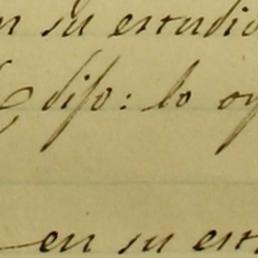 en su estudio
dijo: lo oy
en su est